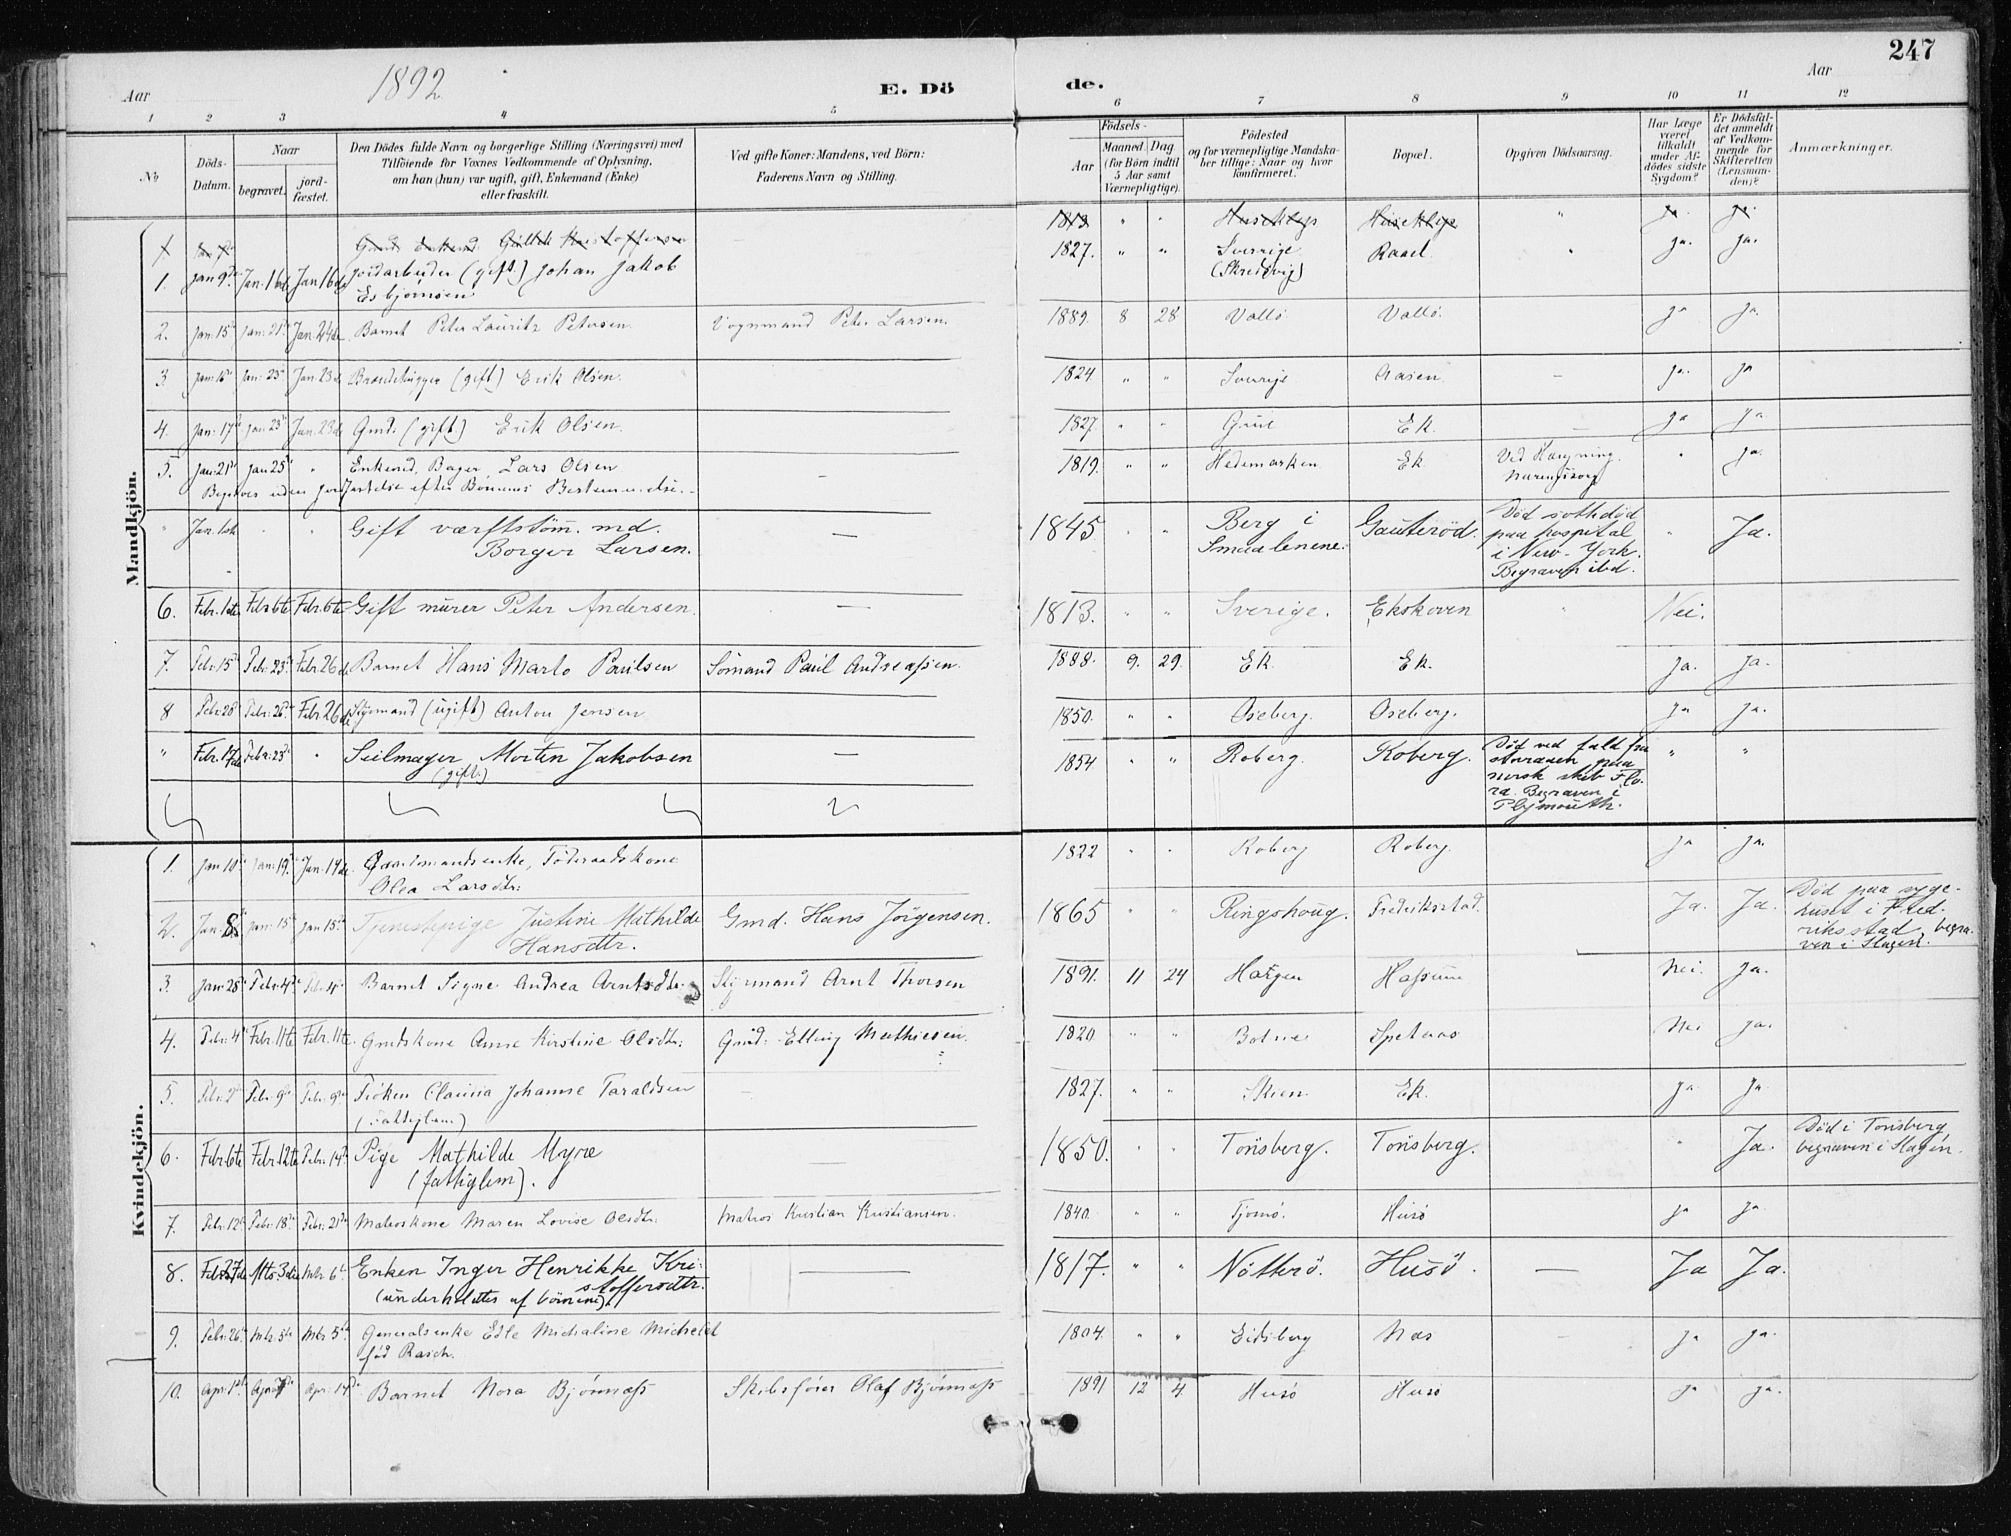 247
Aar 1892 E. Döde. Aar
1 2 3 4 5 6 7 8 9 10 11 12
No
Döds-Datum.
Naar
begravet.
jordfæstet.
Den Dödes fulde Navn og borgerlige Stilling (Næringsvei) med
Tilföiende for Voxnes Vedkommende af Oplysning,
om han (hun) var ugift, gift, Enkemand (Enke)
eller fraskilt.
Ved gifte Koner: Mandens, ved Børn:
Faderens Navn og Stilling.
Födsels-
Aar
Maaned Dag
(for Børn indtil
5 Aar samt
Værnepligtige).
Födested
og for værnepligtige Mandskaber tillige: Naar og hvor
konfirmeret.
Bopæl.
Opgiven Dödsaarsag.
Har Læge
været
tilkaldt
under Afdödes sidste
Sygdom?
Er Dödsfaldet anmeldt
af Vedkommende for
Skifteretten
(Lensmanden)?
Anmærkninger.
Mandkjön.
1813 " "
1. Jan 9de Jan. 16de Jan 16de Jordarbeider (gift) Johan Jakob 1827. " " Sverige Raael " ja. ja.
Esbjørnsen (Skredsvig)
2. Jan. 15de Jan. 21de Jan. 24de Barnet Peter Lauritz Petersen. Vognmand Peter Larsen. 1889. 8 28 Vallö Vallö. ja ja.
3. Jan. 16de Jan. 23de Jan. 23de Brændehugger (gift) Erik Olsen. 1824 " " Sverige Aasen. – ja. ja
4. Jan. 17de Jan. 23de Jan. 23de Gmd. (gift) Erik Olsen. 1827. " " Ek. – ja ja
5. Jan. 21de Jan 25de " Enkemd, Bager Lars Olsen – 1819. " " Hedemarken Ek. Ved Hængning. " ja.
Begraves uden Jordfæstelse efter Börnenes Bestemmelse. Næringssorg
" Jan. 1ste " " Gift værftstöm̄. md. – 1845 " " Berg i Gauteröd. Död sottedöd " Ja.
Borger Larsen. Smaalenene. paa hospital
i New-York.
Begraven ibd.
6. Febr. 1ste Febr 6te Febr. 6te Gift murer Peter Andersen. – 1813. " " Sverige. Ekskoven " Nei.
7. Febr. 15de Febr. 23de Febr. 26de Barnet Hans Marlo Paulsen Sömand Paul Andreassen. 1888. 9. 29. Ek. Ek. ja. ja.
8 Febr. 20de Febr. 26de Febr 26de Styrmand (ugift) Anton Jensen 1850. " " Oseberg. Oseberg. ja ja.
" Febr. 17de Febr. 23de " Seilmager Morten Jakobsen – 1854. " " Roberg. Roberg. Död ved fald fra " "
(gift) storraaen paa
norsk skib Flora. Begraven i
Plymouth.
Kvindekjön.
1. Jan 10de Jan. 19de Jan. 19de Gaardmandsenke, Föderaadskone 1822 " " Roberg Roberg. ja ja.
Olea Larsdtr:
2. Jan. 8de Jan. 15de Jan 15de Tjenestepige Justine Mathilde Gmd. Hans Jörgensen. 1865 " " Ringshoug. Fredriksstad. Ja. Ja. Död paa sygehuset i Fredriksstad, begraven i Slagen.
Hansdtr.
3 Jan. 28de Febr. 4de Febr. 4de Barnet Signe Andrea Arntsdtr. Styrmand Arnt Thorsen 1891. 11 24 Hassum Nei. ja.
4. Febr. 4de Febr. 11te Febr. 11te. Gmdskone Anne Kirstine Olsdtr: Gmd. Elling Mathiesen. 1820 " " Botne Spetaas Nei ja.
5. Febr. 2de Febr. 9de Febr. 9de Fröken Claudia Johanne Taraldsen 1827. " " Skien. Ek. ja. ja
(Fattiglem)
6. Febr 6te Febr. 12te Febr. 14de Pige Mathilde Myre – 1850. " " Tönsberg. Tönsberg. " Ja. Död i Tönsberg
(fattiglem). begraven i Slagen.
7. Febr. 12te Febr. 18de Febr. 21de Matroskone Maren Lovise Olsdtr. Matros Kristian Kristiansen. 1840 " " Tjömö. Husö ja ja.
8. Febr. 27de Mts. 3die Mts. 6te Enken Inger Henrikke Kri- – 1817. " " Nötterö. Husö. – Ja Ja.
(underholdtes af börnene). stoffersdtr.
9. Febr. 26de Mts. 5te Mts 5te. Generalsenke Edle Michaline Michelet 1804. " " Eidsberg Næs – ja ja.
föd Rasch.
10. Apr. 1ste Apr. 7de Apr. 14de Barnet Nora Bjönnæss Skibsförer Olaf Bjönnæss 1891 12 4 Husö Husö ja ja.